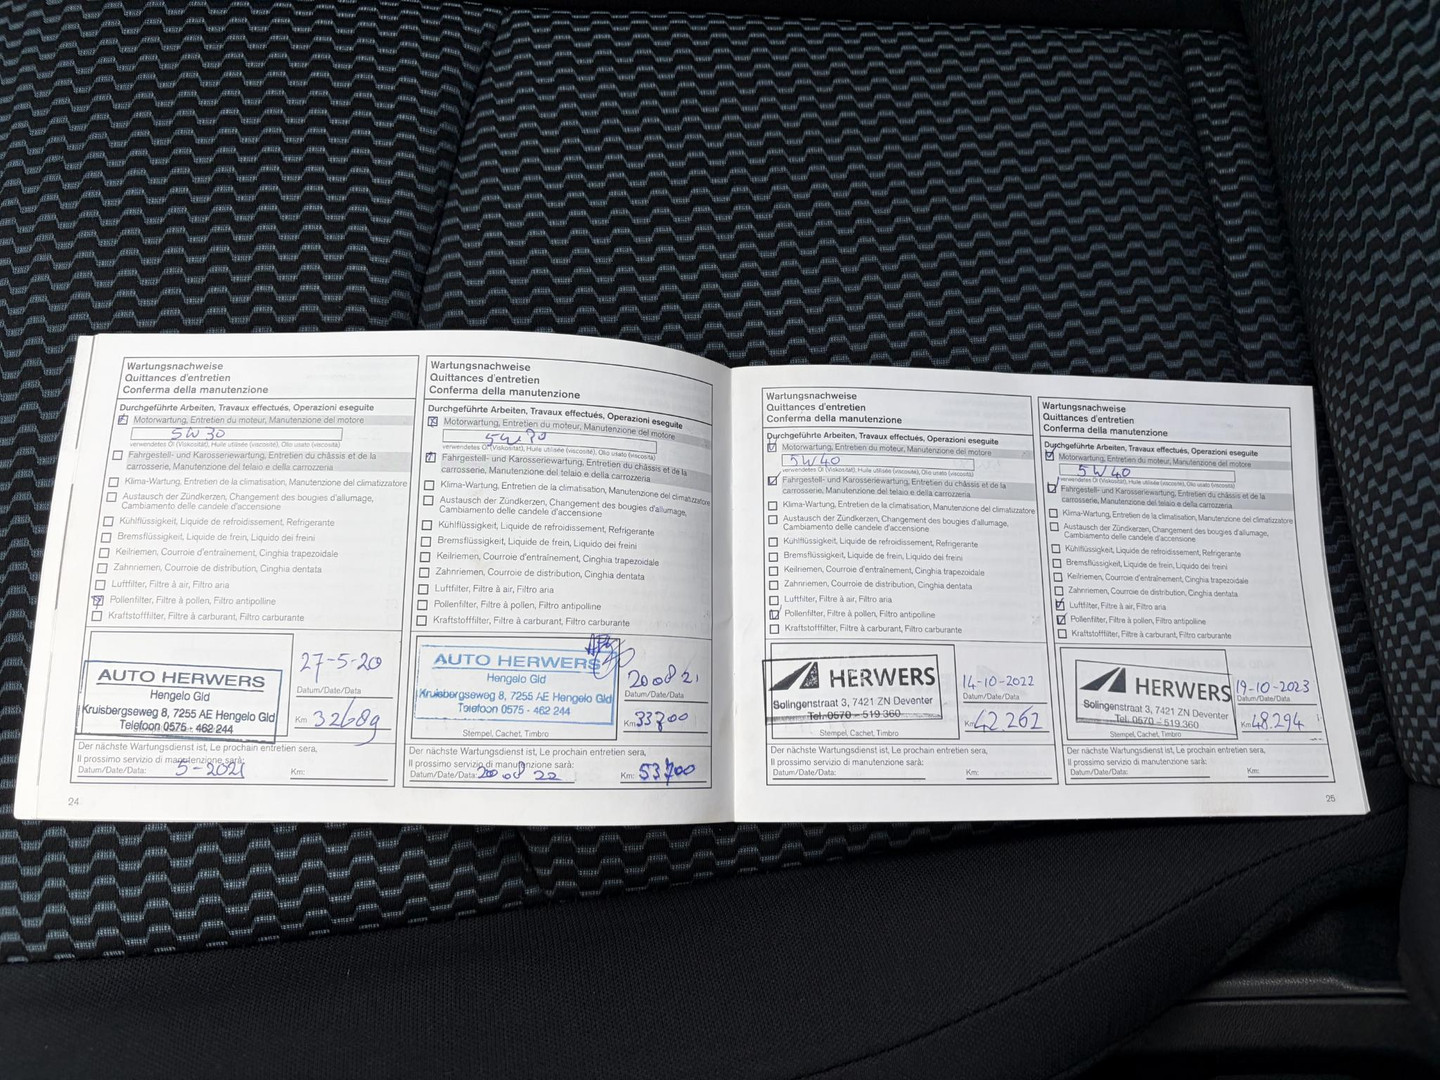 Wartungsnachweise
Quittances d'entretien
Conferma della manutenzione
Durchgeführte Arbeiten, Travaux effectués, Operazioni eseguite
Motorwartung, Entretien du moteur, Manutenzione del motore
5W30
verwendetes Öl (Viskosität), Huile utilisée (viscosité), Olio usato (viscosità)
Fahrgestell- und Karosseriewartung, Entretien du châssis et de la
carrosserie, Manutenzione del telaio e della carrozzeria
Klima-Wartung, Entretien de la climatisation, Manutenzione del climatizzatore
Austausch der Zündkerzen, Changement des bougies d'allumage,
Cambiamento delle candele d'accensione
Kühlflüssigkeit, Liquide de refroidissement, Refrigerante
Bremsflüssigkeit, Liquide de frein, Liquido dei freini
Keilriemen, Courroie d'entraînement, Cinghia trapezoidale
Zahnriemen, Courroie de distribution, Cinghia dentata
Luftfilter, Filtre à air, Filtro aria
Pollenfilter, Filtre à pollen, Filtro antipolline
Kraftstofffilter, Filtre à carburant, Filtro carburante
AUTO HERWERS
Hengelo Gld
Kruisbergseweg 8, 7255 AE Hengelo Gld
Telefoon 0575 - 462 244
27-5-20
Datum/Date/Data
Km 32689
Der nächste Wartungsdienst ist, Le prochain entretien sera,
Il prossimo servizio di manutenzione sarà:
Datum/Date/Data: 5-2021 Km:
24
Wartungsnachweise
Quittances d'entretien
Conferma della manutenzione
Durchgeführte Arbeiten, Travaux effectués, Operazioni eseguite
Motorwartung, Entretien du moteur, Manutenzione del motore
5W30
verwendetes Öl (Viskosität), Huile utilisée (viscosité), Olio usato (viscosità)
Fahrgestell- und Karosseriewartung, Entretien du châssis et de la
carrosserie, Manutenzione del telaio e della carrozzeria
Klima-Wartung, Entretien de la climatisation, Manutenzione del climatizzatore
Austausch der Zündkerzen, Changement des bougies d'allumage,
Cambiamento delle candele d'accensione
Kühlflüssigkeit, Liquide de refroidissement, Refrigerante
Bremsflüssigkeit, Liquide de frein, Liquido dei freini
Keilriemen, Courroie d'entraînement, Cinghia trapezoidale
Zahnriemen, Courroie de distribution, Cinghia dentata
Luftfilter, Filtre à air, Filtro aria
Pollenfilter, Filtre à pollen, Filtro antipolline
Kraftstofffilter, Filtre à carburant, Filtro carburante
AUTO HERWERS
Hengelo Gld
Kruisbergseweg 8, 7255 AE Hengelo Gld
Telefoon 0575 - 462 244
Stempel, Cachet, Timbro
20 08 21
Datum/Date/Data
Km
Der nächste Wartungsdienst ist, Le prochain entretien sera,
Il prossimo servizio di manutenzione sarà:
Datum/Date/Data: 20 08 22 Km: 53700
Wartungsnachweise
Quittances d'entretien
Conferma della manutenzione
Durchgeführte Arbeiten, Travaux effectués, Operazioni eseguite
Motorwartung, Entretien du moteur, Manutenzione del motore
5W40
verwendetes Öl (Viskosität), Huile utilisée (viscosité), Olio usato (viscosità)
Fahrgestell- und Karosseriewartung, Entretien du châssis et de la
carrosserie, Manutenzione del telaio e della carrozzeria
Klima-Wartung, Entretien de la climatisation, Manutenzione del climatizzatore
Austausch der Zündkerzen, Changement des bougies d'allumage,
Cambiamento delle candele d'accensione
Kühlflüssigkeit, Liquide de refroidissement, Refrigerante
Bremsflüssigkeit, Liquide de frein, Liquido dei freini
Keilriemen, Courroie d'entraînement, Cinghia trapezoidale
Zahnriemen, Courroie de distribution, Cinghia dentata
Luftfilter, Filtre à air, Filtro aria
Pollenfilter, Filtre à pollen, Filtro antipolline
Kraftstofffilter, Filtre à carburant, Filtro carburante
HERWERS
Solingenstraat 3, 7421 ZN Deventer
Tel. 0570 - 519 360
Stempel, Cachet, Timbro
14-10-2022
Datum/Date/Data
Km 42.262
Der nächste Wartungsdienst ist, Le prochain entretien sera,
Il prossimo servizio di manutenzione sarà:
Datum/Date/Data: Km:
Wartungsnachweise
Quittances d'entretien
Conferma della manutenzione
Durchgeführte Arbeiten, Travaux effectués, Operazioni eseguite
Motorwartung, Entretien du moteur, Manutenzione del motore
5W40
verwendetes Öl (Viskosität), Huile utilisée (viscosité), Olio usato (viscosità)
Fahrgestell- und Karosseriewartung, Entretien du châssis et de la
carrosserie, Manutenzione del telaio e della carrozzeria
Klima-Wartung, Entretien de la climatisation, Manutenzione del climatizzatore
Austausch der Zündkerzen, Changement des bougies d'allumage,
Cambiamento delle candele d'accensione
Kühlflüssigkeit, Liquide de refroidissement, Refrigerante
Bremsflüssigkeit, Liquide de frein, Liquido dei freini
Keilriemen, Courroie d'entraînement, Cinghia trapezoidale
Zahnriemen, Courroie de distribution, Cinghia dentata
Luftfilter, Filtre à air, Filtro aria
Pollenfilter, Filtre à pollen, Filtro antipolline
Kraftstofffilter, Filtre à carburant, Filtro carburante
HERWERS
Solingenstraat 3, 7421 ZN Deventer
Tel. 0570 - 519 360
Stempel, Cachet, Timbro
19-10-2023
Datum/Date/Data
Km 48.294
Der nächste Wartungsdienst ist, Le prochain entretien sera,
Il prossimo servizio di manutenzione sarà:
Datum/Date/Data: Km:
25